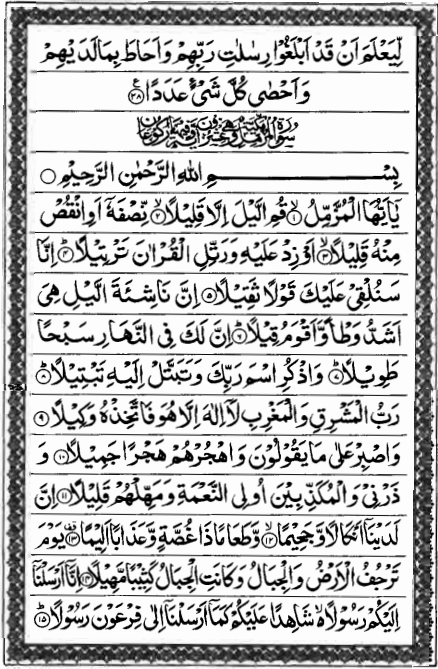 لِّيَعْلَمَ اَنْ قَدْ اَبْلَغُوْا رِسٰلٰتِ رَبِّهِمْ وَ اَحَاطَ بِمَا لَدَيْهِمْ
وَ اَحْصٰى كُلَّ شَيْءٍ عَدَدًا ﴿۲۸﴾ ع
بِسْمِ اللّٰهِ الرَّحْمٰنِ الرَّحِيْمِ ○
يٰۤاَيُّهَا الْمُزَّمِّلُ ﴿۱﴾ قُمِ الَّيْلَ اِلَّا قَلِيْلًا ﴿۲﴾ نِّصْفَهٗۤ اَوِ انْقُصْ
مِنْهُ قَلِيْلًا ﴿۳﴾ اَوْ زِدْ عَلَيْهِ وَ رَتِّلِ الْقُرْاٰنَ تَرْتِيْلًا ﴿۴﴾ اِنَّا
سَنُلْقِيْ عَلَيْكَ قَوْلًا ثَقِيْلًا ﴿۵﴾ اِنَّ نَاشِئَةَ الَّيْلِ هِيَ
اَشَدُّ وَطْاً وَّ اَقْوَمُ قِيْلًا ﴿۶﴾ اِنَّ لَكَ فِي النَّهَارِ سَبْحًا
طَوِيْلًا ﴿۷﴾ وَ اذْكُرِ اسْمَ رَبِّكَ وَ تَبَتَّلْ اِلَيْهِ تَبْتِيْلًا ﴿۸﴾
رَبُّ الْمَشْرِقِ وَ الْمَغْرِبِ لَاۤ اِلٰهَ اِلَّا هُوَ فَاتَّخِذْهُ وَكِيْلًا ﴿۹﴾
وَ اصْبِرْ عَلٰى مَا يَقُوْلُوْنَ وَ اهْجُرْهُمْ هَجْرًا جَمِيْلًا ﴿۱۰﴾ وَ
ذَرْنِيْ وَ الْمُكَذِّبِيْنَ اُولِي النَّعْمَةِ وَ مَهِّلْهُمْ قَلِيْلًا ﴿۱۱﴾ اِنَّ
لَدَيْنَاۤ اَنْكَالًا وَّ جَحِيْمًا ﴿۱۲﴾ وَّ طَعَامًا ذَا غُصَّةٍ وَّ عَذَابًا اَلِيْمًا ﴿۱۳﴾ يَوْمَ
تَرْجُفُ الْاَرْضُ وَ الْجِبَالُ وَ كَانَتِ الْجِبَالُ كَثِيْبًا مَّهِيْلًا ﴿۱۴﴾ اِنَّاۤ اَرْسَلْنَاۤ
اِلَيْكُمْ رَسُوْلًا ۙ شَاهِدًا عَلَيْكُمْ كَمَاۤ اَرْسَلْنَاۤ اِلٰى فِرْعَوْنَ رَسُوْلًا ﴿۱۵﴾